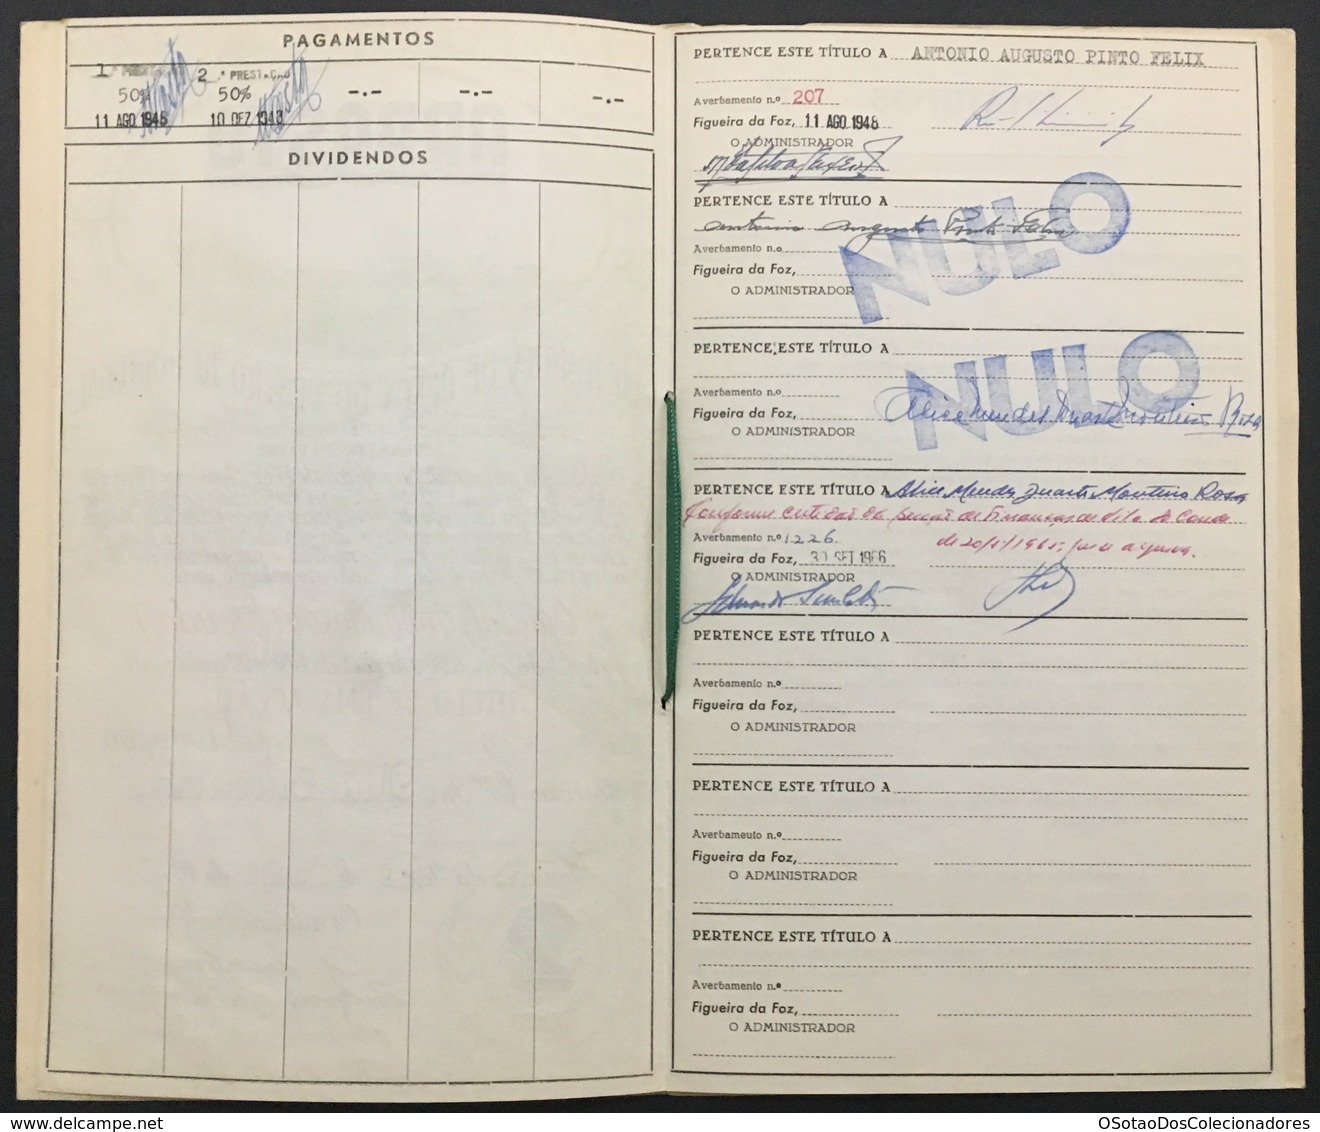 PAGAMENTOS
1.ª PRESTAÇÃO
50%
11 AGO 1948
2.ª PRESTAÇÃO
50%
10 DEZ 1948
-.-
-.-
-.-
DIVIDENDOS
PERTENCE ESTE TÍTULO A ANTONIO AUGUSTO PINTO FELIX
Averbamento n.º 207
Figueira da Foz, 11 AGO 1948
O ADMINISTRADOR
PERTENCE ESTE TÍTULO A
Antonio Augusto Pinto Felix
Averbamento n.º
Figueira da Foz,
O ADMINISTRADOR
NULO
PERTENCE ESTE TÍTULO A
Averbamento n.º
Figueira da Foz,
Alice Mendes Duarte Monteiro Rosa
O ADMINISTRADOR
NULO
PERTENCE ESTE TÍTULO A Alice Mendes Duarte Monteiro Rosa
Conforme certidão da Secção de Finanças de Vila do Conde
Averbamento n.º 1226
Figueira da Foz, 30 SET 1966
O ADMINISTRADOR
PERTENCE ESTE TÍTULO A
Averbamento n.º
Figueira da Foz,
O ADMINISTRADOR
PERTENCE ESTE TÍTULO A
Averbameuto n.º
Figueira da Foz,
O ADMINISTRADOR
PERTENCE ESTE TÍTULO A
Averbamento n.º
Figueira da Foz,
O ADMINISTRADOR
OSotaoDosColecionadores
delcampe.net